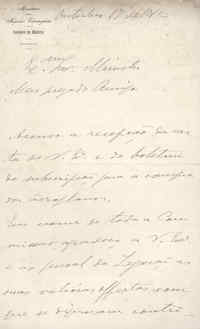 Ministerio
Negocios Estrangeiros
Gabinete do Ministro
Outubro 17 de 912
Ex.mo Sr. Ministro
Meu prezado Amigo
Accuso a recepção da car-
ta de V. Ex. e do boletim
de subscripção para a compra
dos aeroplanos.
Em nome de toda a Com-
missão agradeço a V. Ex.
e ao pessoal da Legação as
suas valiosas offertas com
que se dignaram contri-